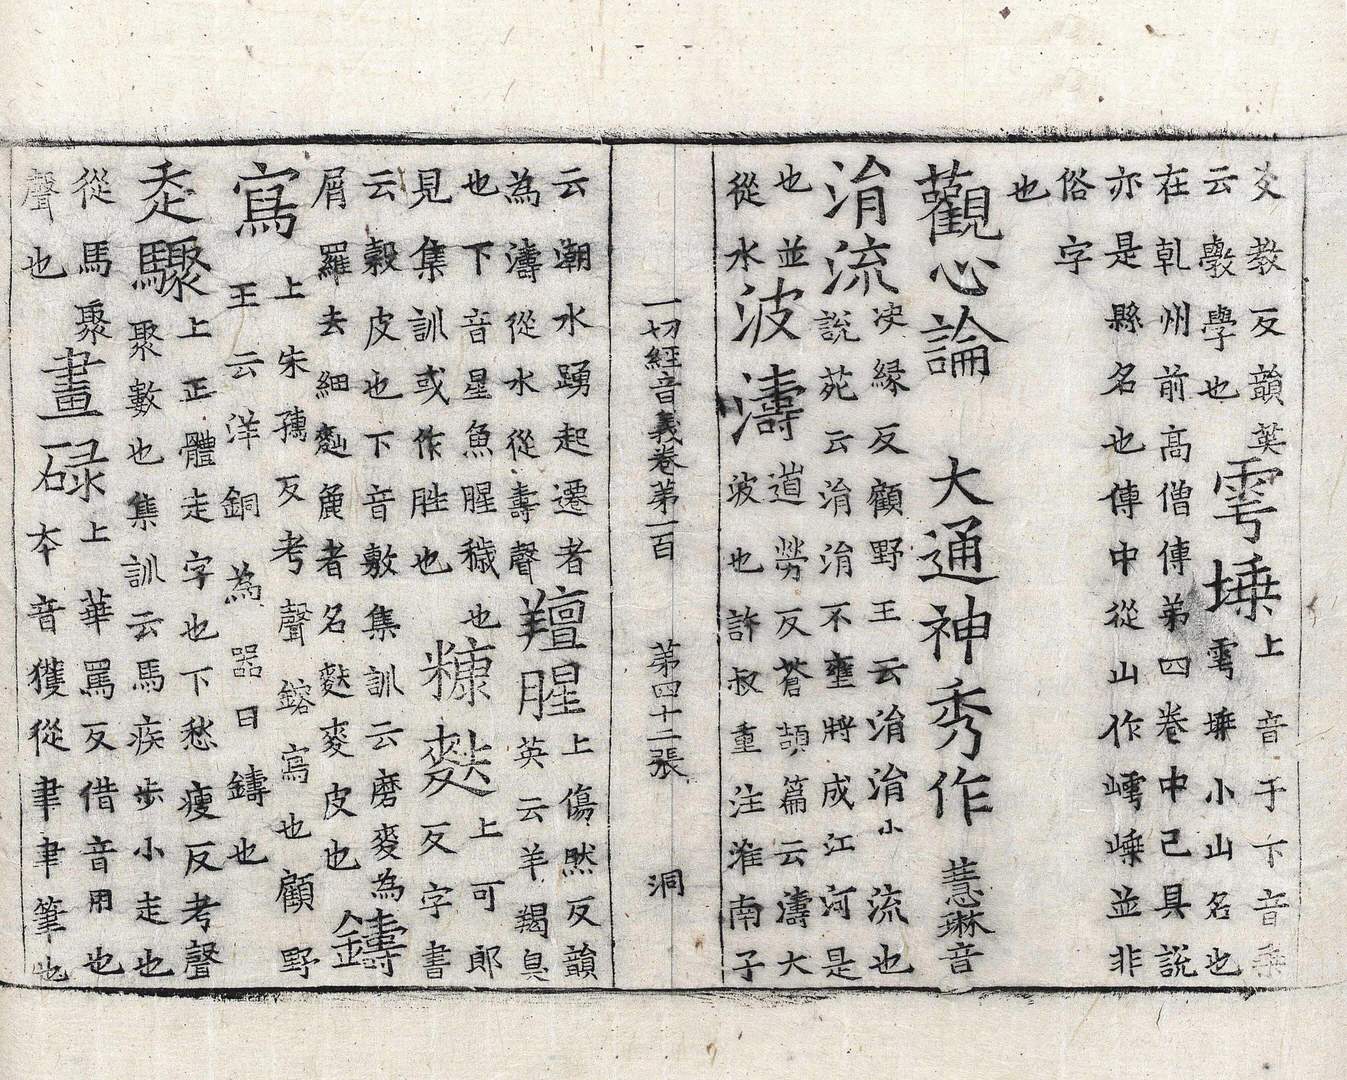 爻教反韻英
云斆學也
雩埵
上音于下音垂
雩埵小山名也
在乹州前高僧傳第四卷中已具說
亦是縣名也傳中從山作嶀㟽並非
俗字
也
觀心論 大通神秀作 慧琳音
涓流
决緣反顧野王云涓涓小流也
說苑云涓涓不壅將成江河是
也並
從水
波濤
道勞反蒼頡篇云濤大
波也許叔重注淮南子
一切經音義卷第一百 第四十二張 洞
云潮水踴起遷者
為濤從水從壽聲
羶腥
上傷然反韻
英云羊羯臭
也下音星魚腥穢也
見集訓或作胜也
糠麩
上可郎
反字書
云穀皮也下音敷集訓云磨麥為
屑羅去細麪麁者名麩麥皮也
鑄
寫
上朱孺反考聲鎔寫也顧野
王云洋銅為器曰鑄也
赱驟
上正體走字也下愁瘦反考聲
驟數也集訓云馬疾步小走也
從馬聚
聲也
畫碌
上華罵反借音用也
夲音獲從聿聿筆也